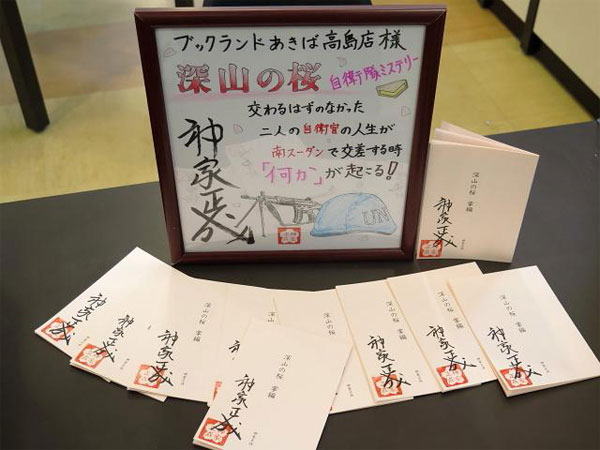 ブックランドあきば 高島店 様
深山の桜 自衛隊ミステリー
交わるはずのなかった
二人の自衛官の人生が
南スーダンで交差する時
「何か」が起こる!
神家正成
UN
深山の桜 掌編
神家正成
神家正成
神家正成
深山の桜 掌編
神家正成
深山の桜 掌編
神家正成
深山の桜 掌編
神家正成
深山の桜 掌編
神家正成
深山の桜 掌編
神家正成